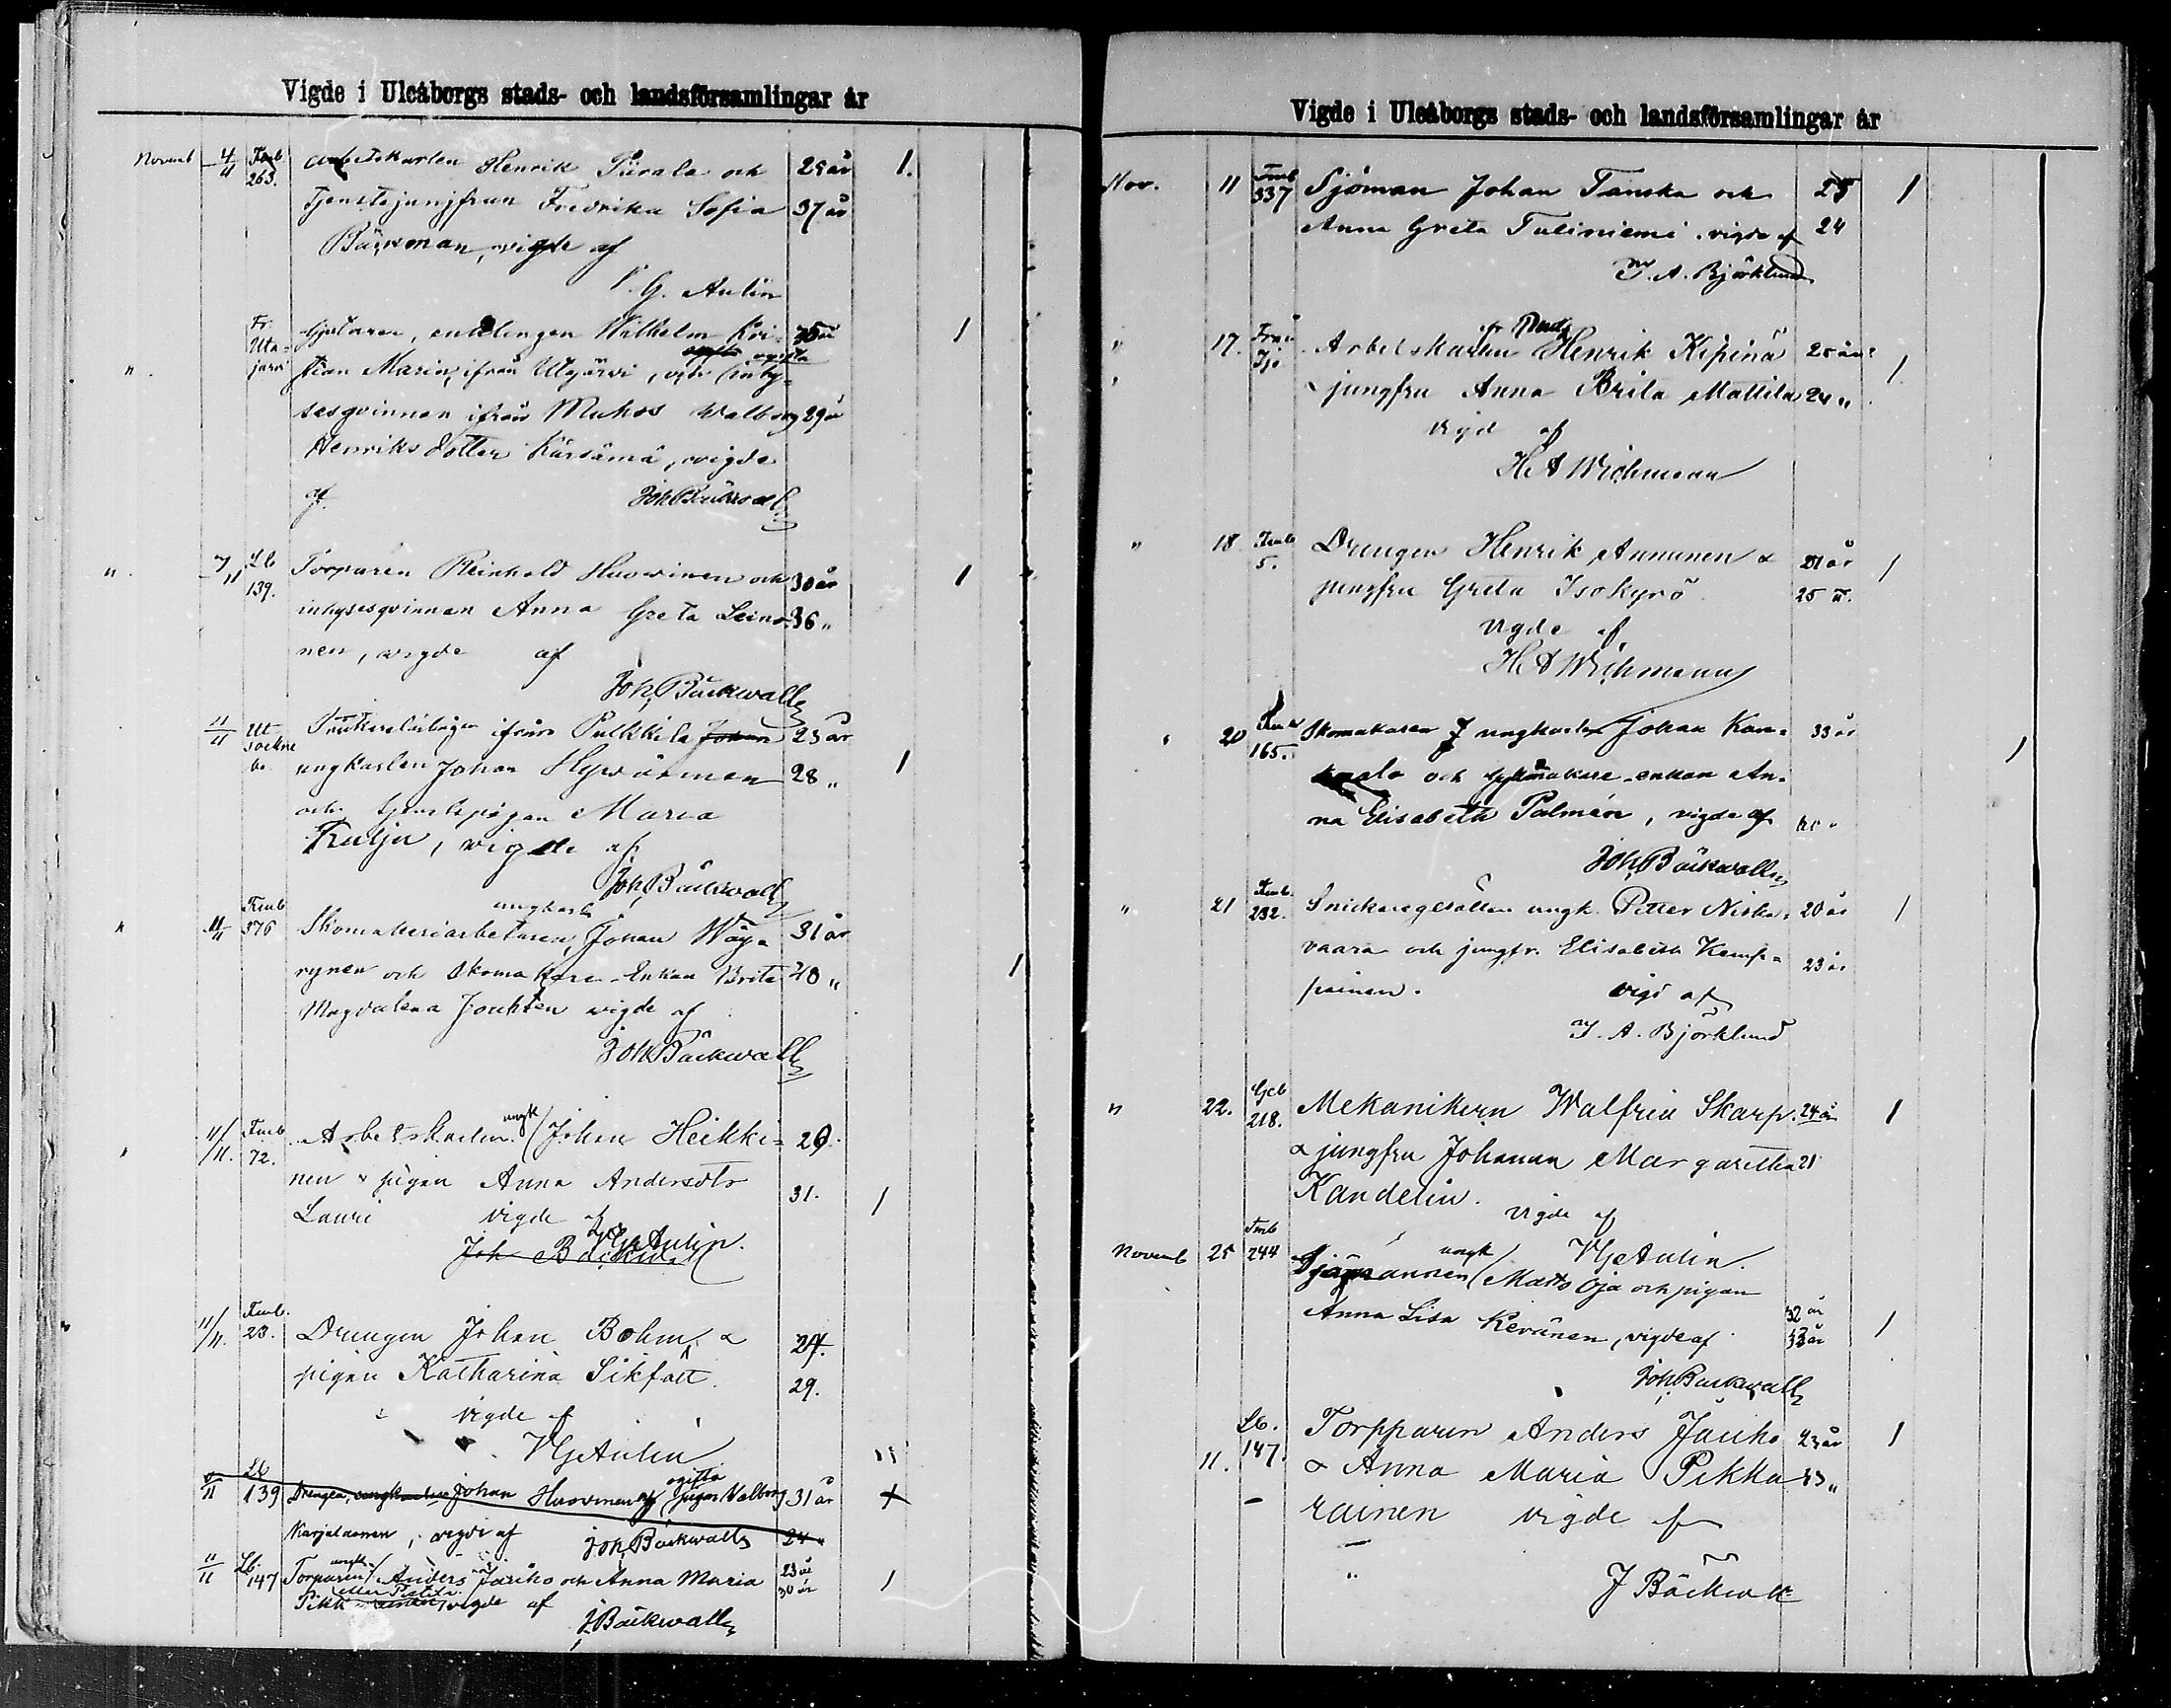 Vigde i Uleåborgs stads- och landsförsamlingar år
Novemb 4/11 Fmb 263. arbetskarlen Henrik Piirala och 25 år 1.
Tjenstejungfrun Fredrika Sofia 37 år
Bäckman, vigde af
V. G. Aulin
Fr. Utajärvi Gjutaren, enklingen Wilhelm Kri- 35 år 1
" stian Marin, ifrån Utajärvi, och ogifta inhy-
sesqvinnan ifrån Muhos Walborg 29 år
Henriksdotter Kärsämä, vigde
af Joh. Bäckwall
" 7/11 Lb 139. Torparen Reinhold Huovinen och 30 år 1
inhysesqvinnan Anna Greta Leino- 36 "
nen, vigde af
Joh. Bäckwall
11/11 Utsockne b. ifrån Pulkkila Johan 23 år
ungkarlen Johan Hyvärinen 28 " 1
och tjenstepigan Maria
Kulju, vigde af
Joh. Bäckwall
" 11/11 Fmb 376 Skomakeriarbetaren, ungkarln Johan Wäy- 31 år
rynen och Skomakare-Enkan Brita 40 " 1
Magdalena Jouhten vigde af
Joh. Bäckwall
" 11/11. Fmb 72. Arbetskarlen ungk Johan Heikki- 26.
nen & pigan Anna Andersdtr 31. 1
Lauri vigde af
VGAulin.
Joh Bäckwall
" 11/11. Fmb. 23. Drengen Johan Bohm, & 24.
pigan Katharina Sikfält. 29.
vigde af
VGAulin
11/11 Lb 139 Drengen, ungkarlen Johan Huovinen och ogifta pigan Valborg 31 år
Karjalainen, vigde af Joh. Bäckwall 24 "
11/11 Lb. 147 Torparen ungk. Anders Jauho och Anna Maria 23 år 1
Pikkarainen, vigde af 30 år
J. Bäckwall
Vigde i Uleåborgs stads- och landsförsamlingar år
Nov. 11 Fmb 337 Sjöman Johan Tanska och 25 1
Anna Greta Tuliniemi. vigde af 24
T. A. Björklund
" 17. Från Ijo Arbetskarlen Henrik Kipinä 25 år 1.
" & jungfru Anna Brita Mattila 24 "
Vigd af
H A Wichmann
" 18 Fmb 5. Drengen Henrik Annunen & 21 år 1
jungfru Greta Isokyrö 25 "
Vigde af
H A Wichmann
" 20 Fmb 165. Skomakaren ungkarlen Johan Kan- 33 år 1
och enkan An-
na Elisabeth Palmén, vigde af
Joh. Bäckwall
" 21 Fmb. 232. Snickaregesällen ungk. Petter Niska- 20 år 1
vaara och jungfr. Elisabeth Kemp- 23 år
painen. vigd af
T. A. Björklund
" 22. Gcb 218. Mekanikern Walfrid Skarp. 24 år 1
& jungfru Johanna Margaretha 21
Kandelin.
Vigde af
VGAulin.
Novemb 25 Fmb 244 Sjömannen ungk Matts Oja och pigan
Anna Lisa Kevänen, vigde af 32 år 1
Joh. Bäckwall
11. Lb. 147. Torpparen Anders Jauho 23 år 1
& Anna Maria Pikka
rainen vigde af
J Bäckwall